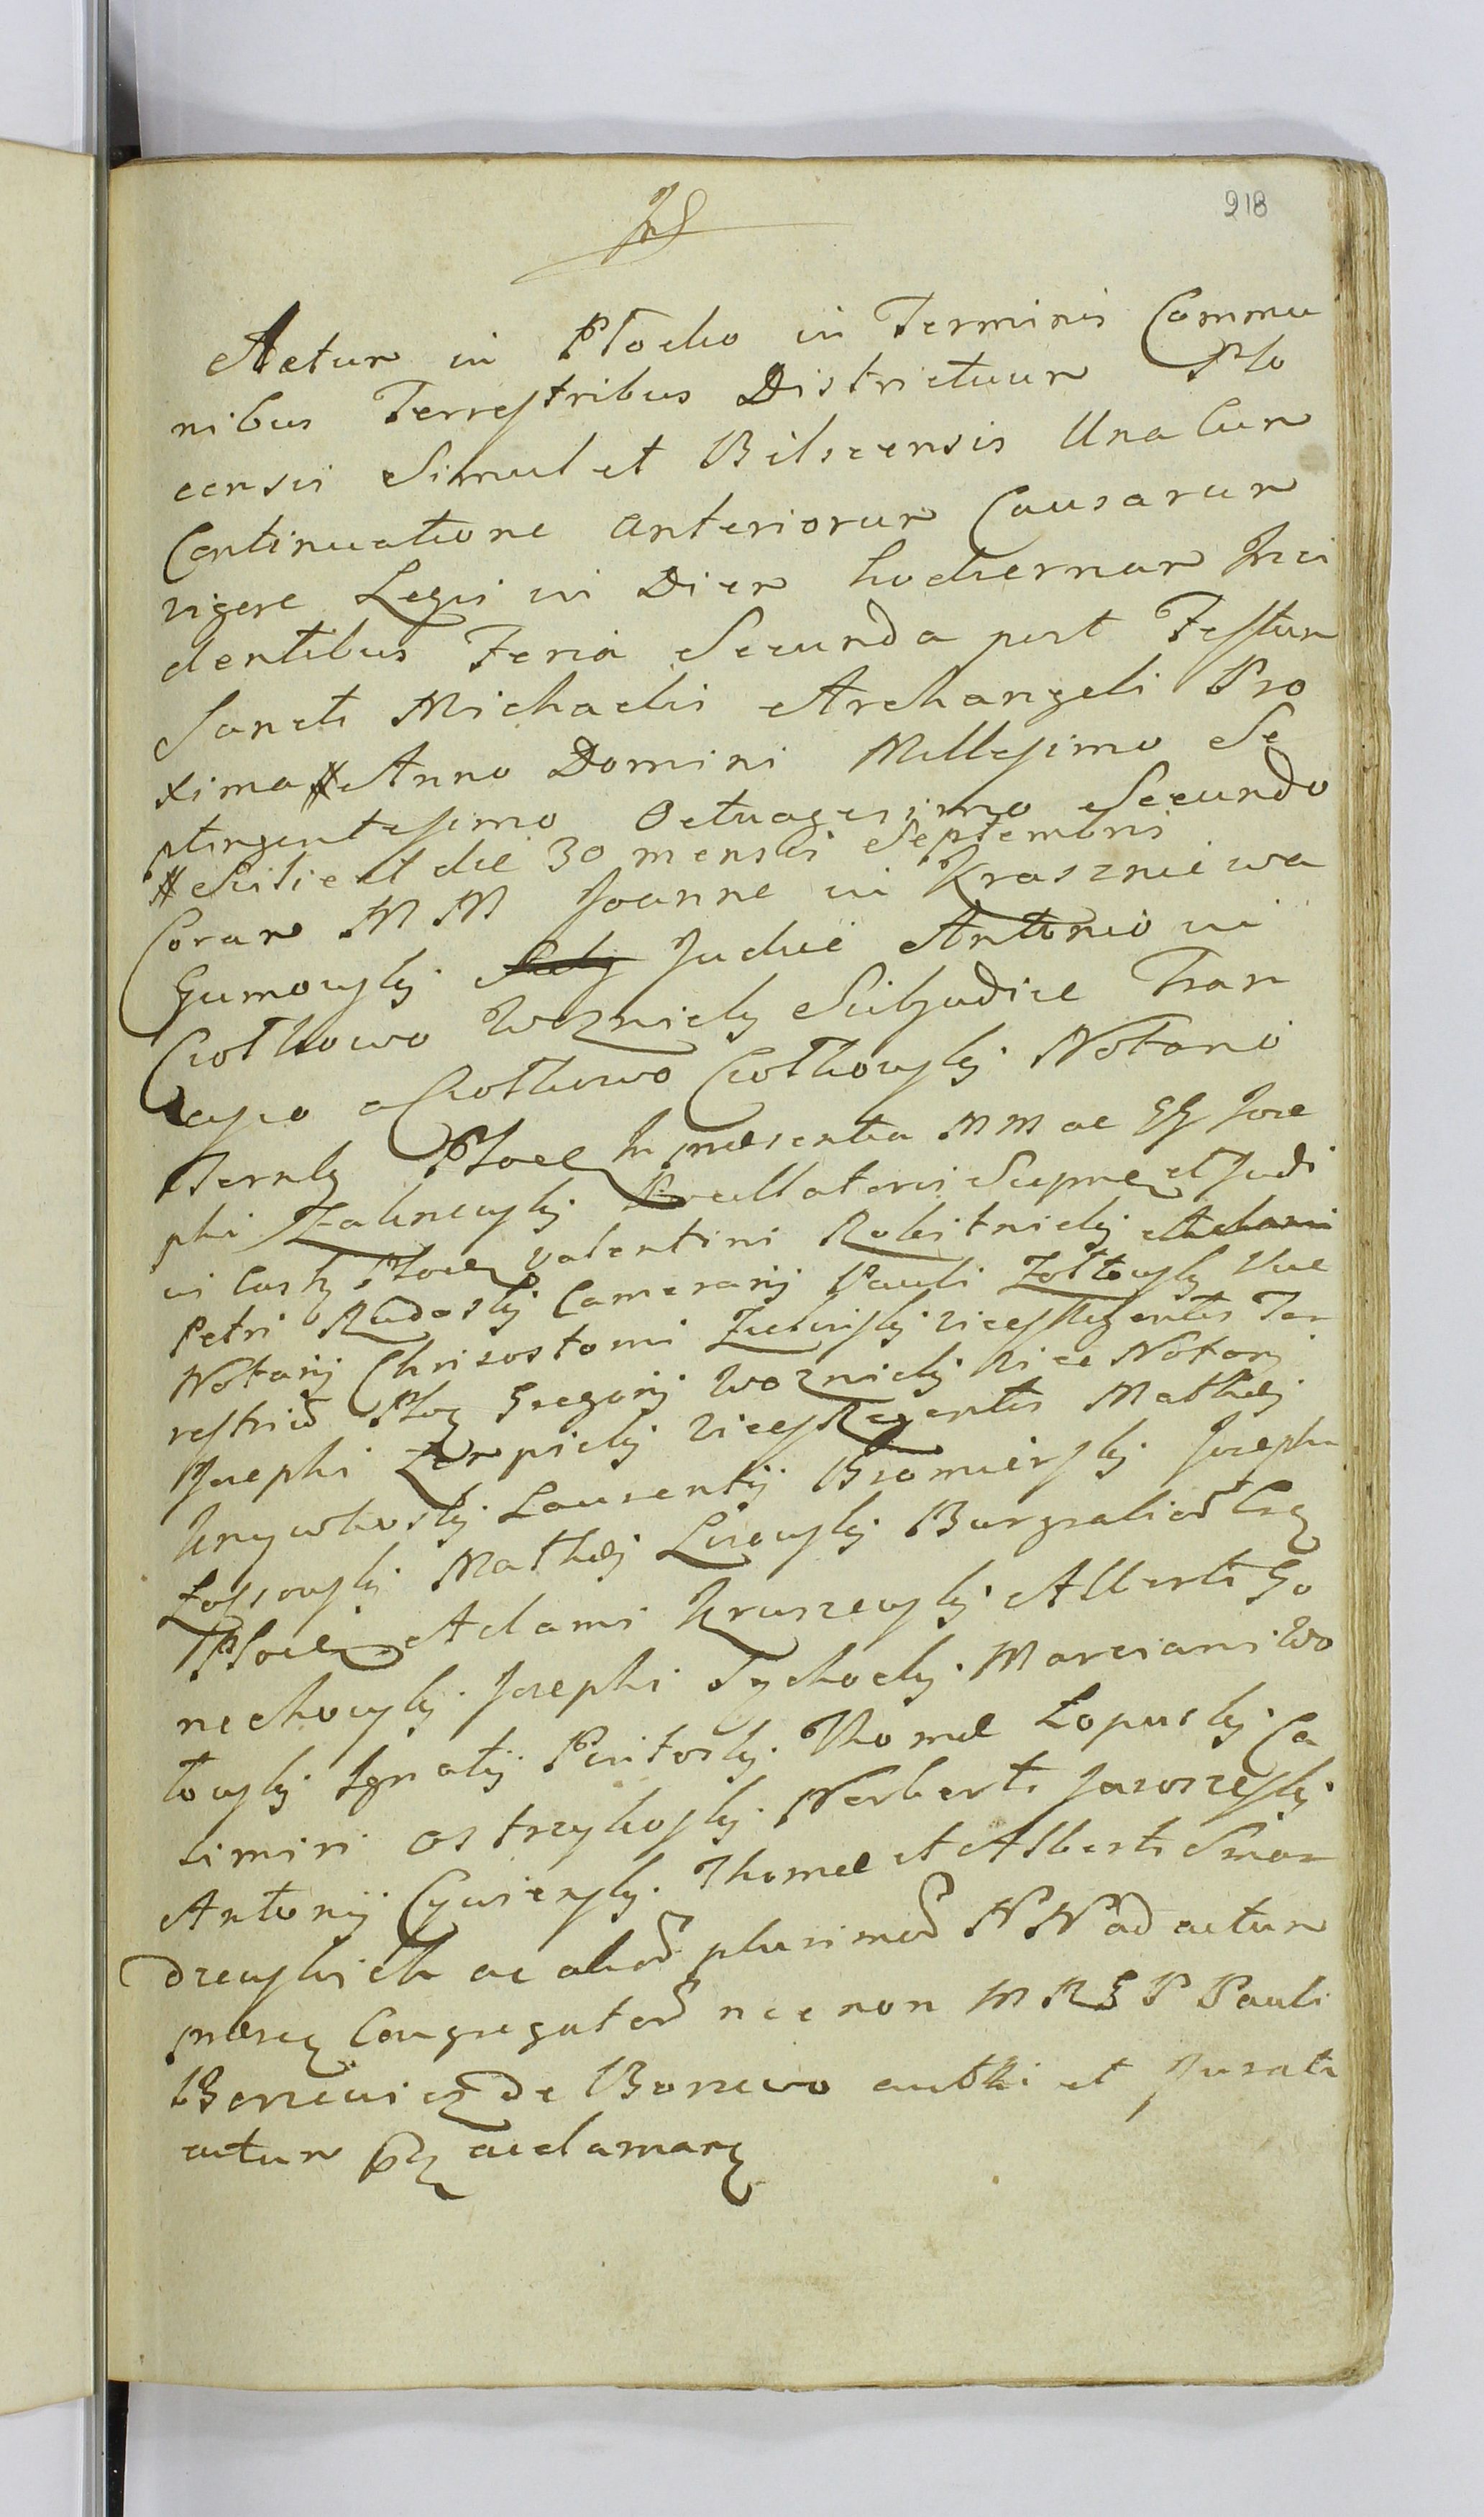 218
Actum in Płocko in Terminis Commu
nibus Terrestribus Districtuum Plo
censis Simul et Bilscensis Una Cum
Continuatione anteriorum Causarum
vigore Legis in Diem hodiernam Inci
dentibus Feria Secunda post Festum
Sancti Michaelis Archangeli Pro
xima # Anno Domini Millesimo Se
ptingentesimo Octuagesimo Secundo
# Scilicet die 30 mensis Septembris
Coram M M Joanne in Krasznie wa
Gumowsky Judice Antonio in
Ciołkowo Woznicky Subjudice Fran
cisco a Ciołkowo Ciołkowsky Notario
Ternls Ploce In præsentia M M ac GG Jose
phi Zalinewsky Pocillatoris Supme et Judi
is Castr Ploce Valentini Robitnicky Adami
Petri Rudosky Camerarij Pauli Zołtowsky Vice
Notarij Chrisostomi Zielinsky vicesRegentis Ter
restriu Ploc Gregorij Woznicky Vice Notarij
Josephi Lempicky vicesRegentis Mathei
Krzywkosky Laurentij Bromirsky Josephi
Lassowsky Mathei Lisowsky Burgrabior Cas
Ploce Adami Kruszewsky Alberti Go
rechowsky Josephi Sychocky Marciani Wo
towsky Ignatij Pentosky Thomæ Łopusky Ca
simiri Ostrzykosky Norberti Jaroszesky
Antonij Cywiensky Thomæ et Alberti Smar
drewskich ac alior plurimor N N ad actum
præsen Congregator nec non M R G P Pauli
Boniewi de Boniewo authi et Jurati
actum ac claman